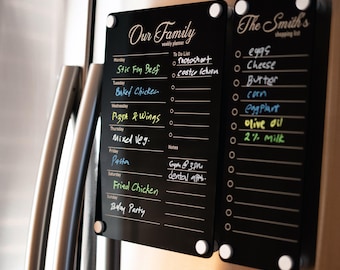 Our Family
weekly planner
Monday
Stir Fry Beef
Tuesday
Baked Chicken
Wednesday
Pizza & Wings
Thursday
Mixed Veg.
Friday
Pasta
Saturday
Fried Chicken
Sunday
Party
To Do List
Photoshoot
Notes
dental appt.
The Smith's
shopping list
eggs
Cheese
Butter
corn
eggplant
olive oil
2% milk